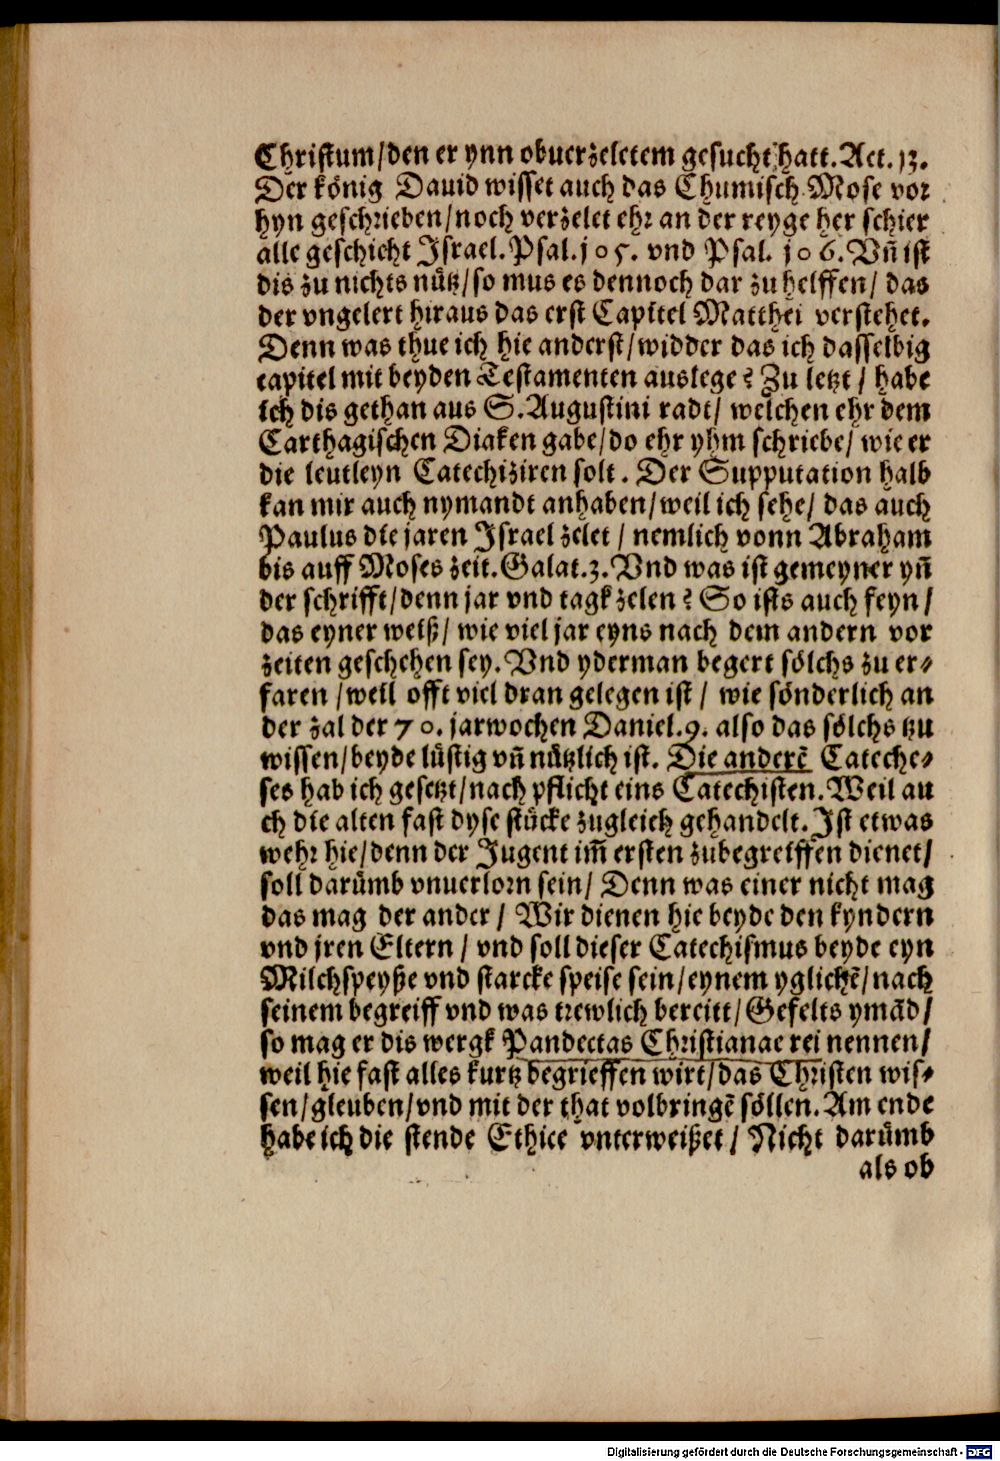 Christum/den er ynn obuerzeletem gesucht hatt. Act. 13.
Der könig Dauid wisset auch das Chumisch Mose vor
hyn geschrieben/noch verzelet ehr an der reyge her schier
alle geschicht Israel. Psal. 105. vnd Psal. 106. Vñ ist
dis zu nichts nütz/so mus es dennoch dar zu helffen/ das
der vngelert hiraus das erst Capitel Matthei verstehet.
Denn was thue ich hie anderst/widder das ich dasselbig
capitel mit beyden Testamenten auslege? Zu letzt / habe
ich dis gethan aus S. Augustini radt/ welchen ehr dem
Carthagischen Diaken gabe/do ehr yhm schriebe/ wie er
die leutleyn Catechiziren solt. Der Supputation halb
kan mir auch nymandt anhaben/weil ich sehe/ das auch
Paulus die jaren Israel zelet / nemlich vonn Abraham
bis auff Moses zeit. Galat. 3. Vnd was ist gemeyner yñ
der schrifft/denn jar vnd tagk zelen? So ists auch feyn/
das eyner weiß/ wie viel jar eyns nach dem andern vor
zeiten geschehen sey. Vnd yderman begert sölchs zu er⸗
faren /weil offt viel dran gelegen ist / wie sönderlich an
der zal der 70. jarwochen Daniel. 9. also das sölchs tzu
wissen/beyde lüstig vñ nützlich ist. Die anderẽ Cateche⸗
ses hab ich gesetzt/nach pflicht eins Catechisten. Weil au
ch die alten fast dyse stücke zugleich gehandelt. Ist etwas
wehr hie/denn der Jugent im̃ ersten zubegreiffen dienet/
soll darümb vnuerlorn sein/ Denn was einer nicht mag
das mag der ander / Wir dienen hie beyde den kyndern
vnd jren Eltern / vnd soll dieser Catechismus beyde eyn
Milchspeyße vnd starcke speise sein/eynem yglichẽ/nach
seinem begreiff vnd was trewlich bereitt/Gefelts ymãd/
so mag er dis wergk Pandectas Christianae rei nennen/
weil hie fast alles kurtz begrieffen wirt/das Christen wis⸗
sen/gleuben/vnd mit der that volbringẽ söllen. Am ende
habe ich die stende Ethice vnterweißet / Nicht darümb
als ob
Digitalisierung gefördert durch die Deutsche Forschungsgemeinschaft - DFG